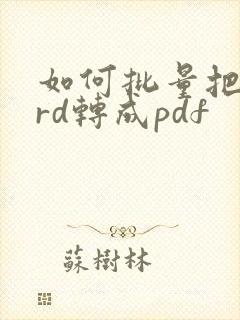 如何批量把
rd轉成pdf
蘇樹林